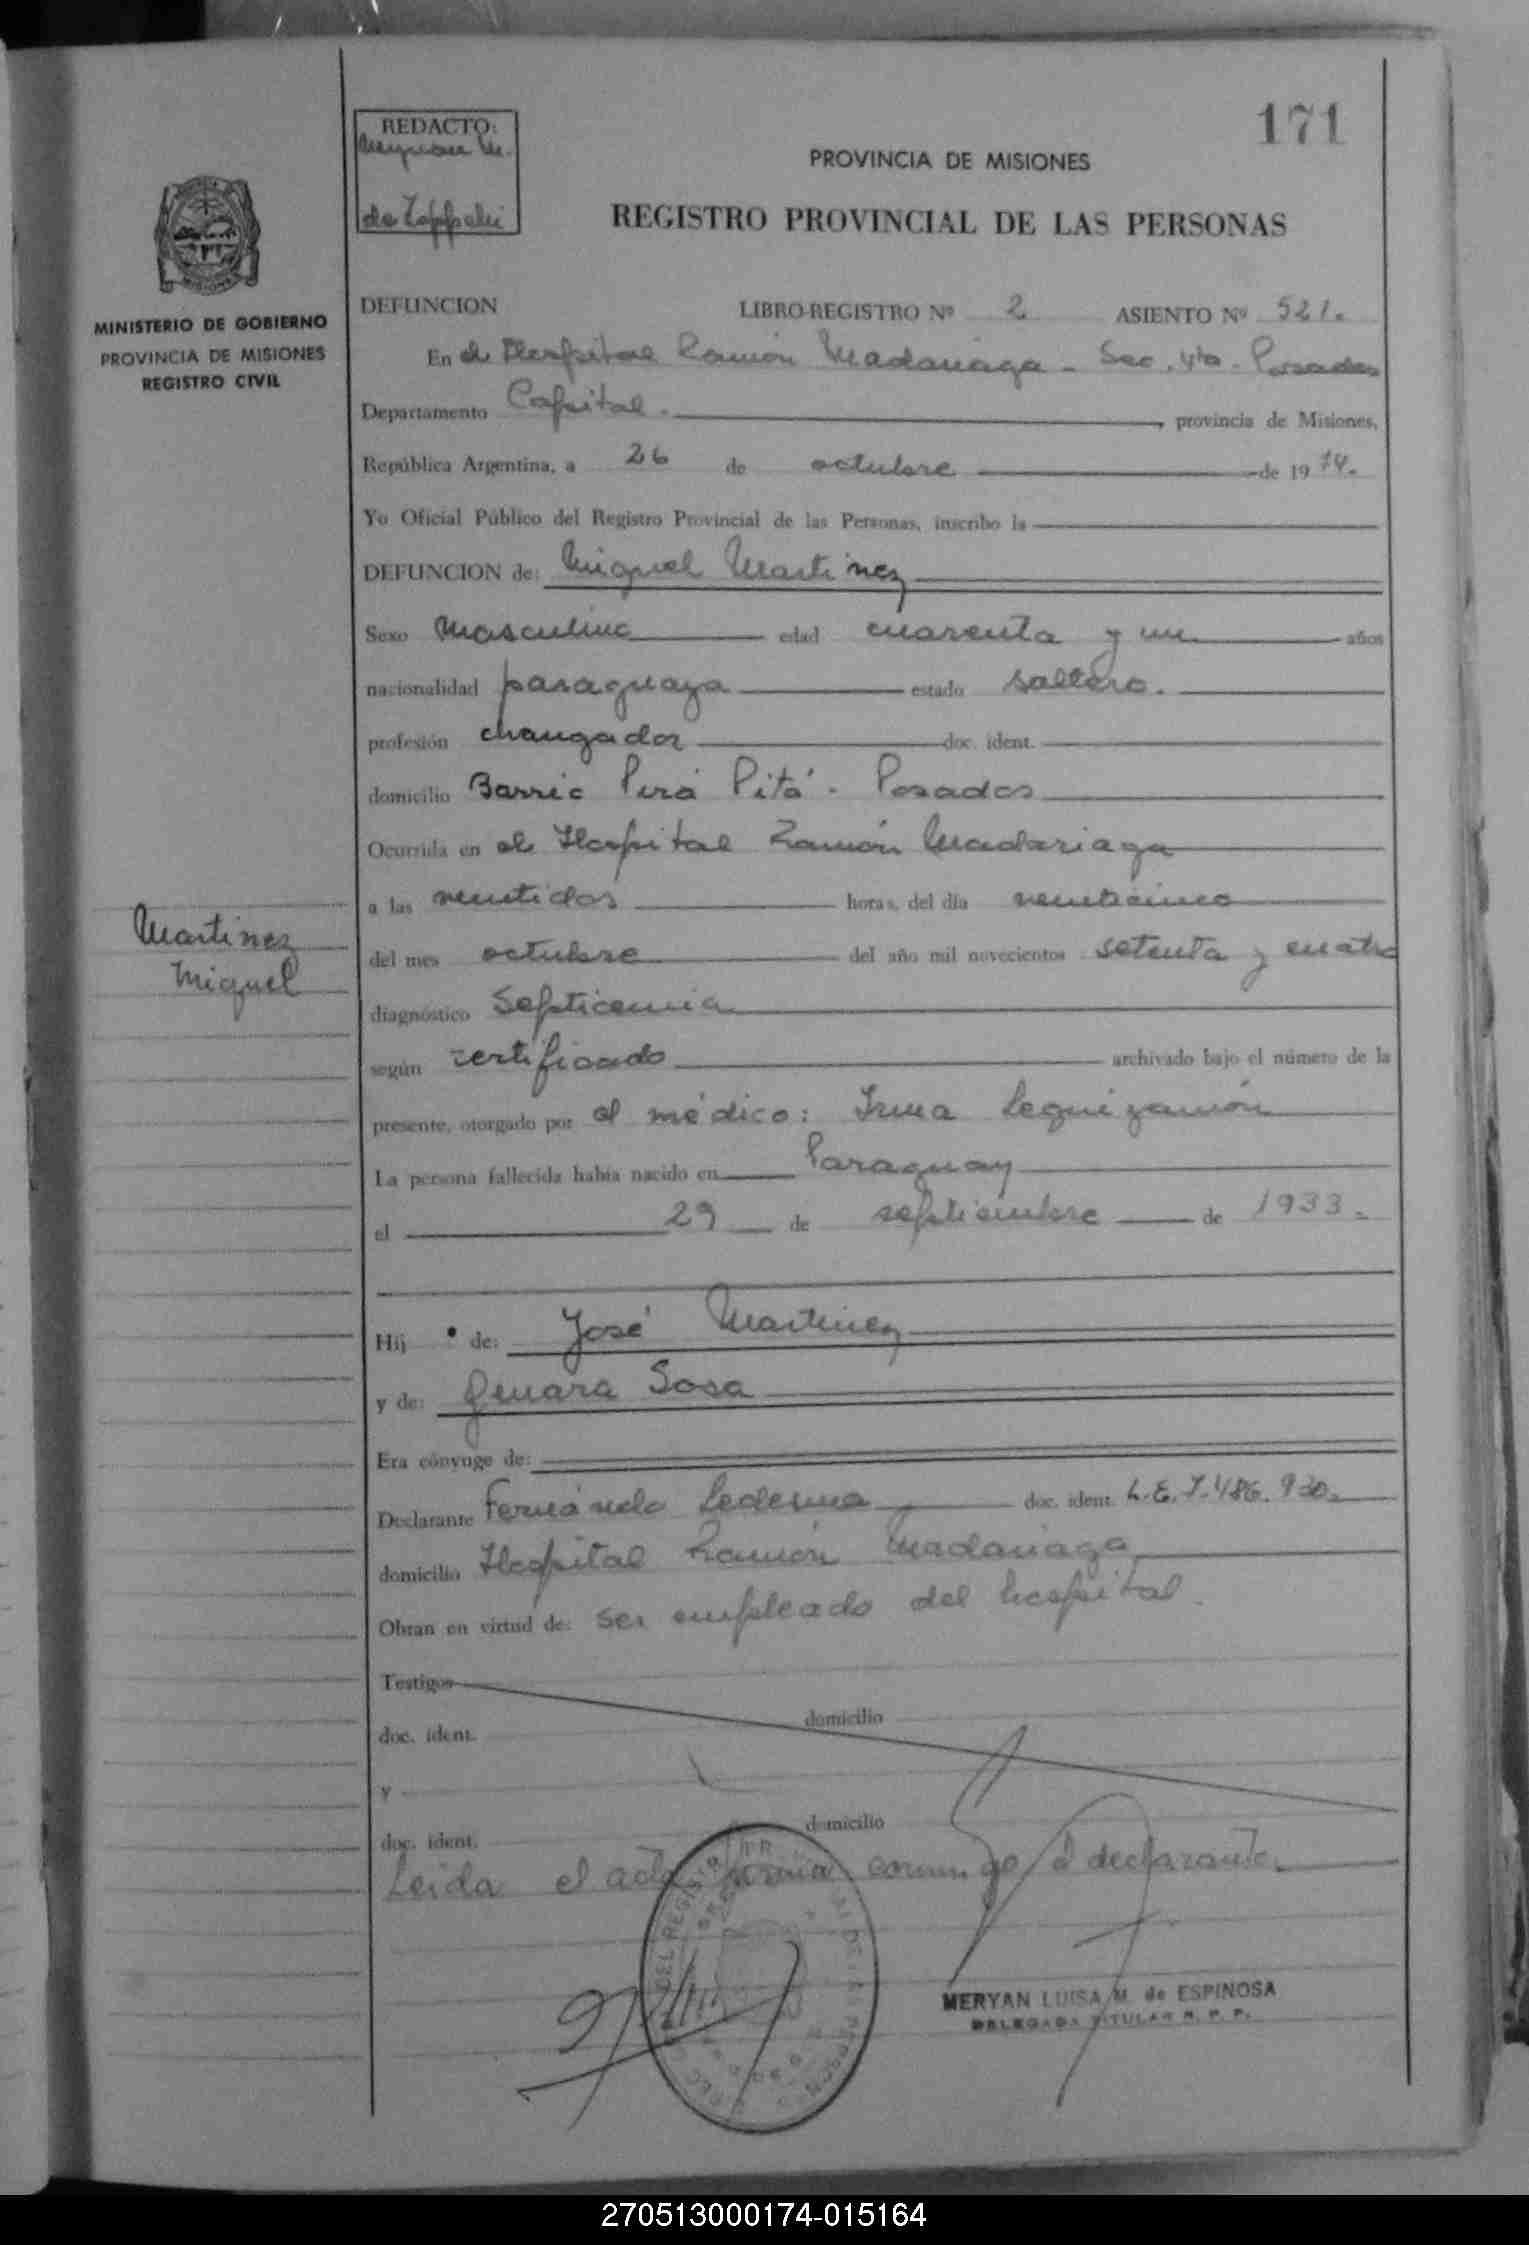 171
REDACTO:
de
PROVINCIA DE MISIONES
REGISTRO PROVINCIAL DE LAS PERSONAS
MINISTERIO DE GOBIERNO
PROVINCIA DE MISIONES
REGISTRO CIVIL
DEFUNCION LIBRO-REGISTRO Nº 2 ASIENTO Nº 521.
En el Hospital Ramón Madariaga - Sec. 4ta. Posadas
Departamento Capital. , provincia de Misiones,
República Argentina, a 26 de octubre de 1974.
Yo Oficial Público del Registro Provincial de las Personas, inscribo la
DEFUNCION de: Miguel Martinez
Sexo masculino edad cuarenta y un años
nacionalidad paraguaya estado soltero.
profesión changador doc. ident.
domicilio Barrio Pirá Pitá - Posadas
Ocurrida en el Hospital Ramón Madariaga
a las veintidos horas, del día veinticinco
del mes octubre del año mil novecientos setenta y cuatro
Martinez
Miguel
diagnóstico Septicemia
según certificado archivado bajo el número de la
presente, otorgado por el médico: Irma Leguizamón
La persona fallecida había nacido en Paraguay
el 29 de septiembre de 1933.
Hij o de: José Martinez
y de: Genara Sosa
Era cónyuge de:
Declarante Fernándo Ledesma doc. ident. L.E. 7.486.930.
domicilio Hospital Ramón Madariaga
Obran en virtud de: ser empleado del hospital.
Testigos
doc. ident. domicilio
y
doc. ident. domicilio
Leida el acta firma conmigo el declarante.
MERYAN LUISA M. de ESPINOSA
DELEGADA TITULAR R. P. P.
270513000174-015164